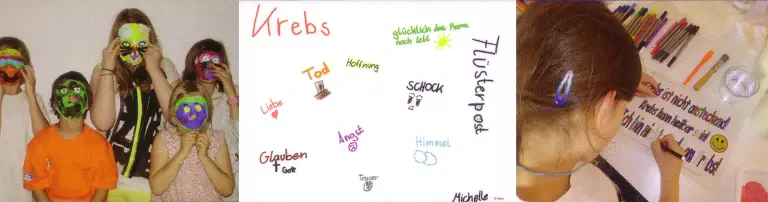 Krebs
glücklich das Mama
noch lebt
Flüsterpost
Hoffnung
Tod
SCHOCK
Liebe
Angst
Himmel
Glauben
Gott
Trauer
Michelle
ist nicht ansteckend
Krebs kann heilbar
Ich bin